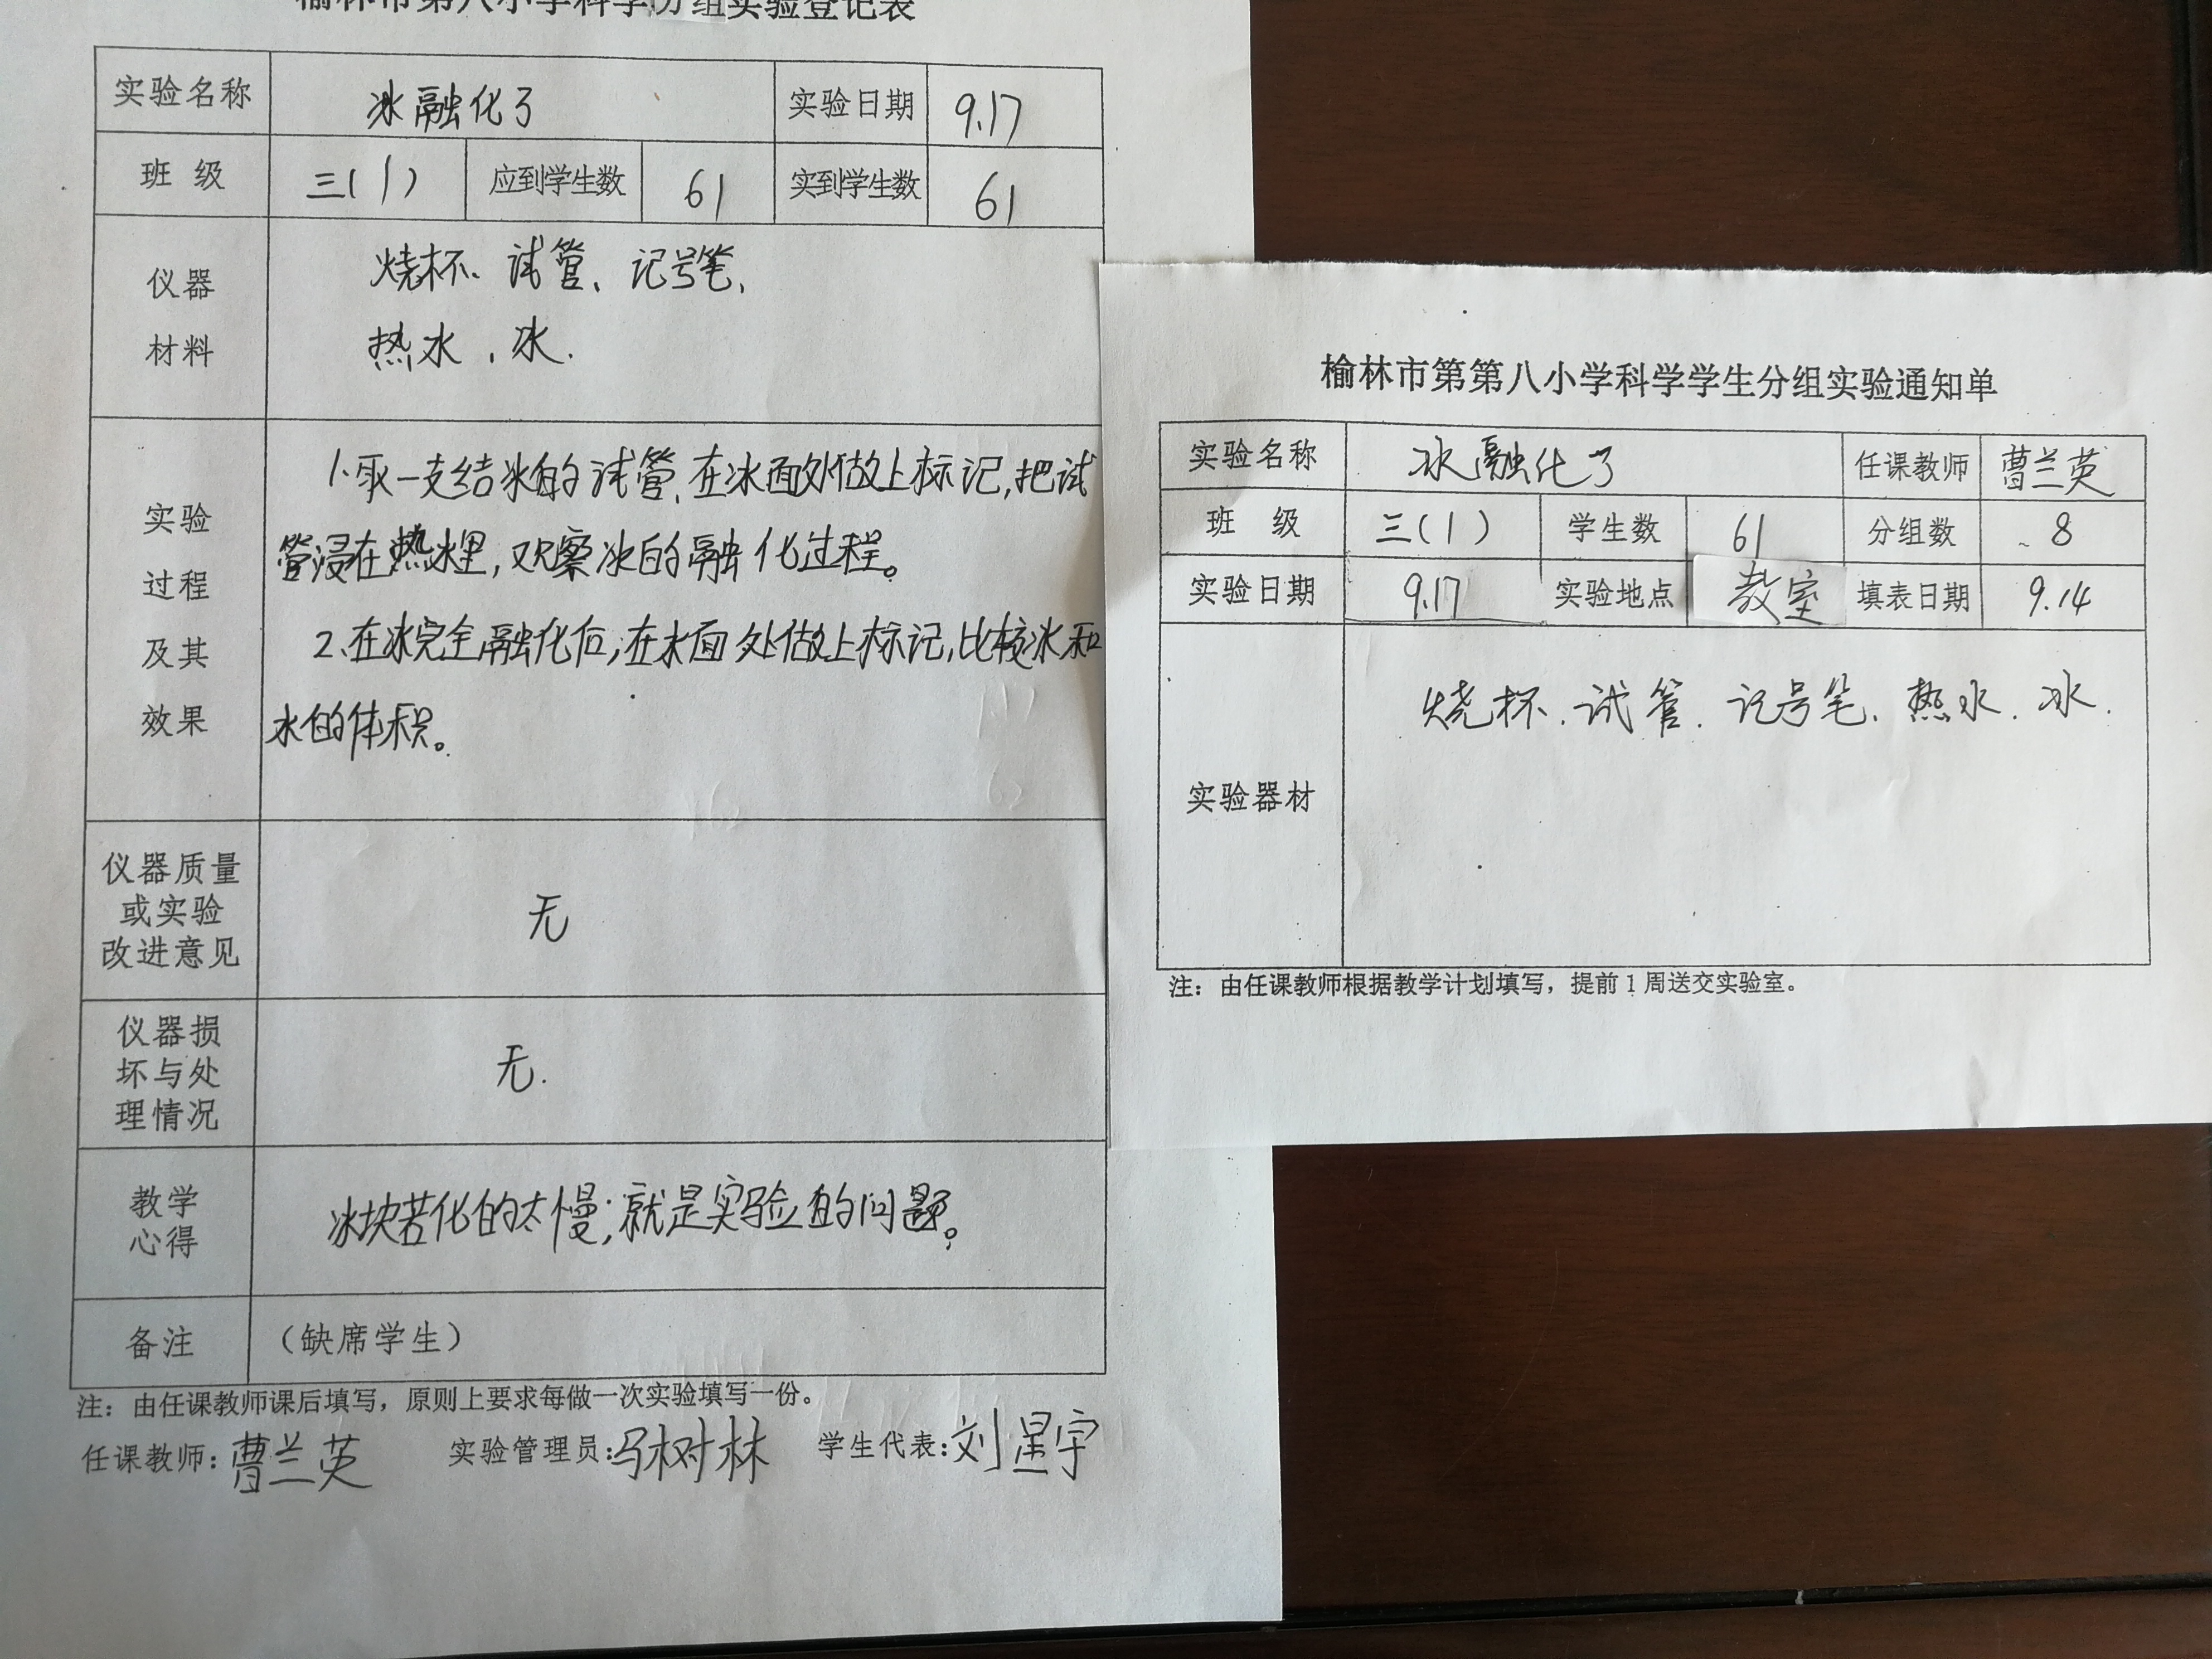 榆林市第八小学科学分组实验登记表
实验名称 冰融化了 实验日期 9.17
班 级 三(1) 应到学生数 61 实到学生数 61
仪器
材料
烧杯、试管、记号笔、
热水、冰.
实验
过程
及其
效果
1.取一支结冰的试管,在冰面处做上标记,把试
管浸在热水里,观察冰的融化过程。
2.在冰完全融化后,在水面处做上标记,比较冰和
水的体积。
仪器质量
或实验
改进意见
无
仪器损
坏与处
理情况
无.
教学
心得
冰块若化的太慢;就是实验的问题。
备注 (缺席学生)
注：由任课教师课后填写，原则上要求每做一次实验填写一份。
任课教师:曹兰英 实验管理员:马树林 学生代表:刘星宇
榆林市第第八小学科学学生分组实验通知单
实验名称 冰融化了 任课教师 曹兰英
班 级 三(1) 学生数 61 分组数 8
实验日期 9.17 实验地点 教室 填表日期 9.14
实验器材
烧杯.试管.记号笔.热水.冰.
注：由任课教师根据教学计划填写，提前1周送交实验室。